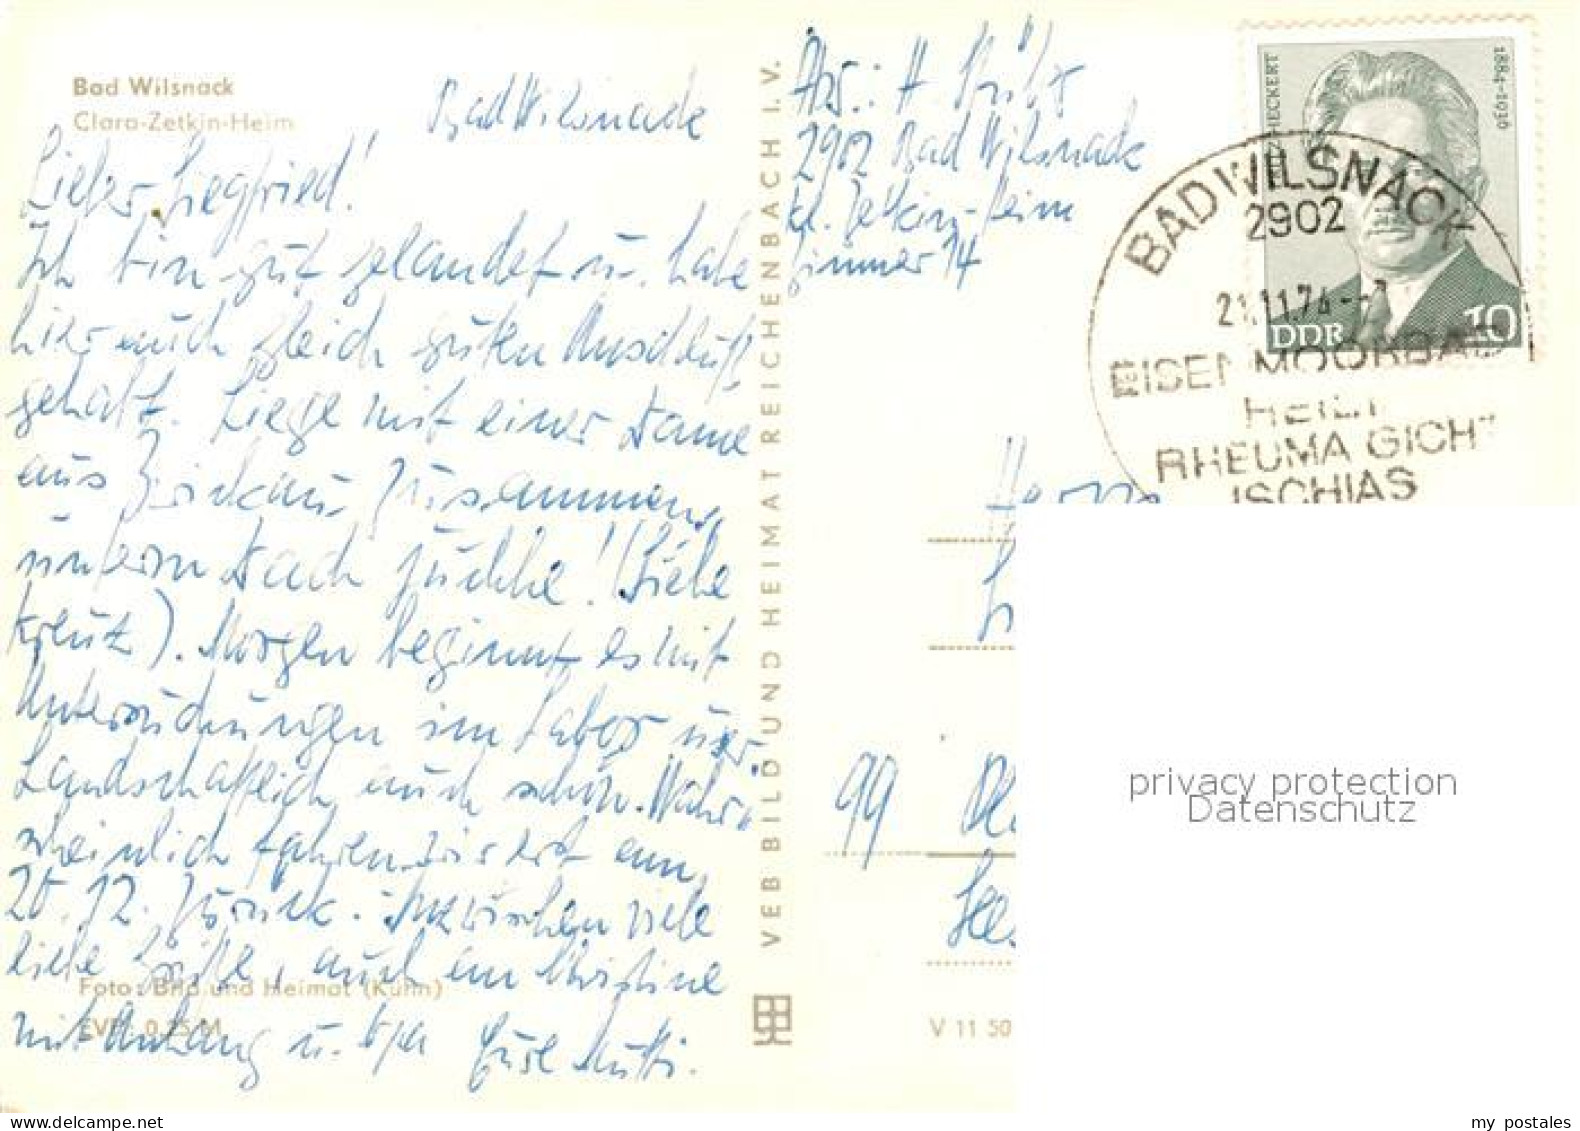 Bad Wilsnack
Clara-Zetkin-Heim
Bad Wilsnack
Lieber Siegfried!
Ich bin gut gelandet u. habe
hier auch gleich guten Anschluß
gehabt. Liege mit einer Dame
aus Zwickau zusammen,
unterm Dach juchhe! (Siehe
Kreuz). Morgen beginnt es mit
Untersuchungen im Labor usw.
Landschaftlich auch schön. Wahr-
scheinlich fahren wir erst am
20. 12. zurück. Inzwischen viele
liebe Grüße, auch an Christine
mit Anhang u. Opa Eure Mutti.
Foto: Bild und Heimat (Kühn)
EVP: 0,25 M
VEB BILD UND HEIMAT REICHENBACH I. V.
Abs.: H
2902 Bad Wilsnack
Kl. Zetkin-Heim
Zimmer 14
HECKERT
1884-1936
DDR
10
BAD WILSNACK
2902
21.11.74
EISEN MOORBAD
HEILT
RHEUMA GICHT
ISCHIAS
Herrn
99
V 11 50
privacy protection
Datenschutz
my postales